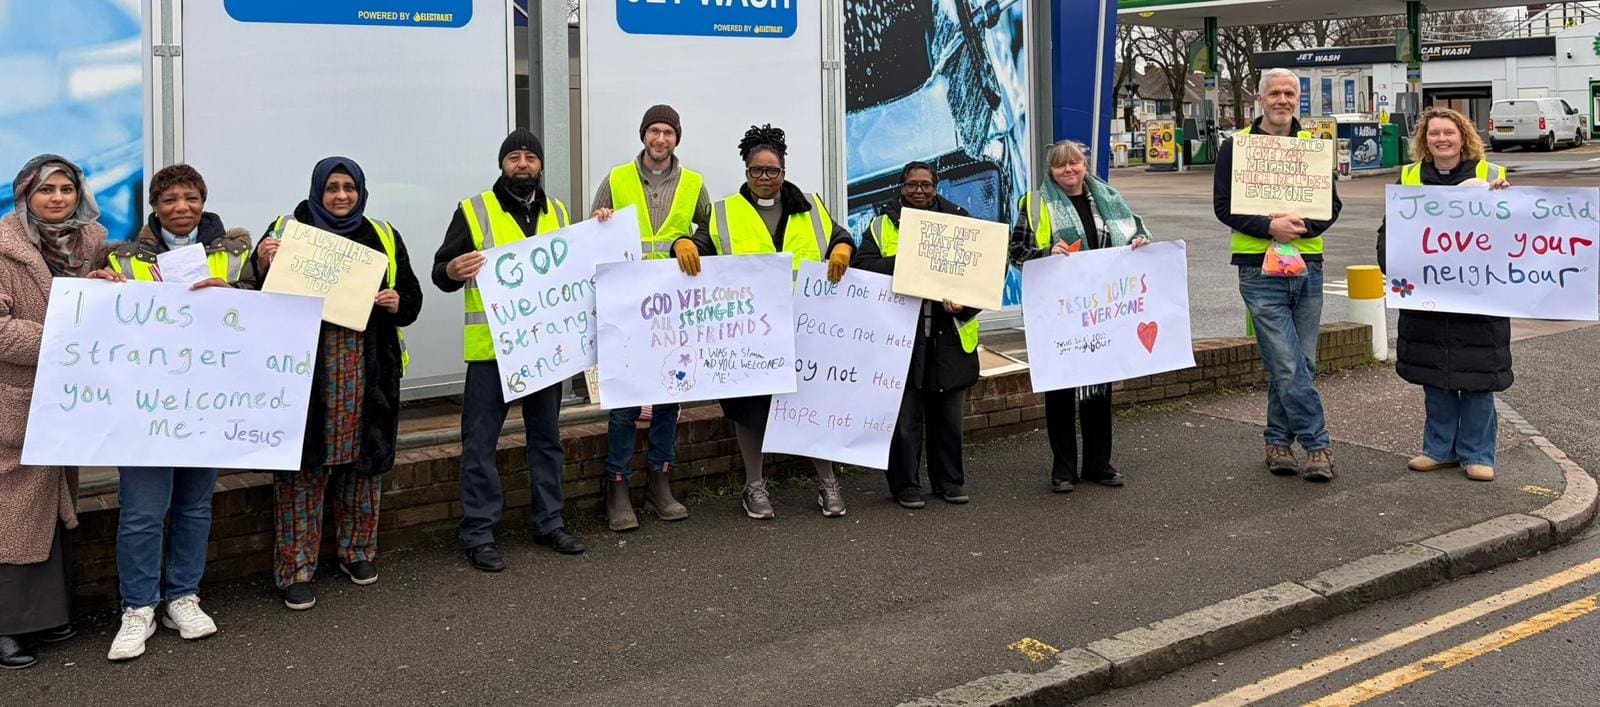 POWERED BY ELECTRAJET
JET WASH
POWERED BY ELECTRAJET
JET WASH
CAR WASH
AdBlue
"I was a
stranger and
you welcomed
me". Jesus
MUSLIMS
LOVE
JESUS
TOO
GOD
welcomes
and
GOD WELCOMES
ALL STRANGERS
AND FRIENDS
I WAS A
AND YOU WELCOMED
ME'
Love not Hate
Peace not Hate
oy not Hate
Hope not Hate
JOY NOT
HATE
HOPE NOT
HATE
JESUS LOVES
EVERYONE
"Jesus said: love
your neighbour"
JESUS SAID
LOVE YOUR
NEIGHBOUR
WHICH INCLUDES
EVERYONE
"Jesus said
Love your
neighbour"